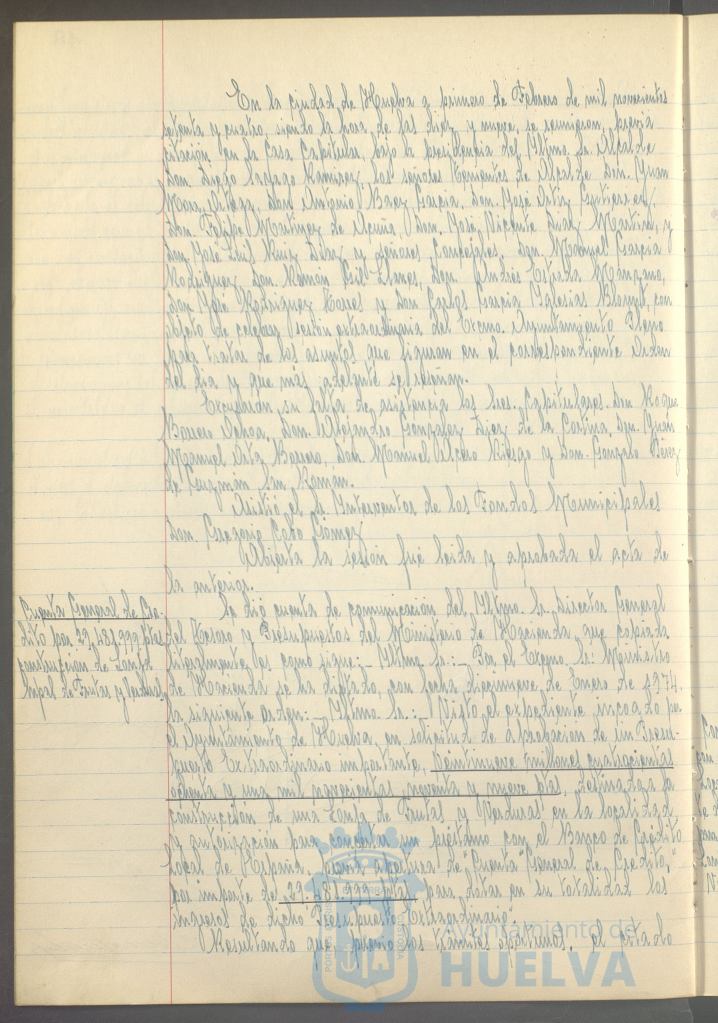 En la ciudad de Huelva a primero de Febrero de mil novecientos
setenta y cuatro, siendo la hora de las diez y nueve, se reunieron, previa
citación en la Casa Capitular, bajo la presidencia del Iltmo. Sr. Alcalde
Don Diego Ramirez, los señores Tenientes de Alcalde Don Juan
Mora Don Antonio Baez Garcia, Don José Ortiz Gutierrez,
Don Felipe Martinez de Acuña, Don José Vicente Martin, y
Don José Luis Ruiz Diaz y señores Concejales, Don Manuel Garcia
Rodriguez, Don Ramón Llanes, Don Andrés Manzano,
Don José Rodriguez y Don Carlos Garcia Yglesias con
objeto de celebrar sesión extraordinaria del Excmo. Ayuntamiento Pleno
para tratar de los asuntos que figuran en el correspondiente Orden
del dia y que más adelante se reseñan.
Excusarón su falta de asistencia los Sres. Capitulares Don Roque
Borrero Ochoa, Don Alejandro Gonzalez Diez de la Cortina, Don Juan
Manuel Borrero, Don Manuel y Don Gonzalo Perez
de Guzmán San Román.
Asistió el Sr. Interventor de los Fondos Municipales
Don Gregorio Gómez
Abierta la sesión fué leida y aprobada el acta de
la anterior.
Cuenta General de Cre-
dito por 29.481.999 ptas
construccion de Lonja
Mpal de Frutas y Verduras
Se dió cuenta de comunicación del Iltmo. Sr. Director General
del Tesoro y Presupuestos del Ministerio de Hacienda, que copiada
literalmente es como sigue:- Iltmo. Sr:- Por el Excmo. Sr. Ministro
de Hacienda se ha dictado, con fecha diecinueve de Enero de 1974,
la siguiente orden:- Iltmo. Sr.:- Visto el expediente incoado por
el Ayuntamiento de Huelva, en solicitud de aprobación de un Presu-
puesto Extraordinario importante, veintinueve millones cuatrocientas
ochenta y una mil novecientas noventa y nueve ptas, destinadas a la
construcción de una Lonja de Frutas y Verduras en la localidad
y autorización para concertar un préstamo con el Banco de Crédito
Local de España, previa apertura de "Cuenta General de Credito,"
por importe de 29.481.999 ptas, para dotar en su totalidad los
ingresos de dicho Presupuesto Extraordinario.
Resultando que, previo los tramites oportunos, el citado
Ayuntamiento de
HUELVA